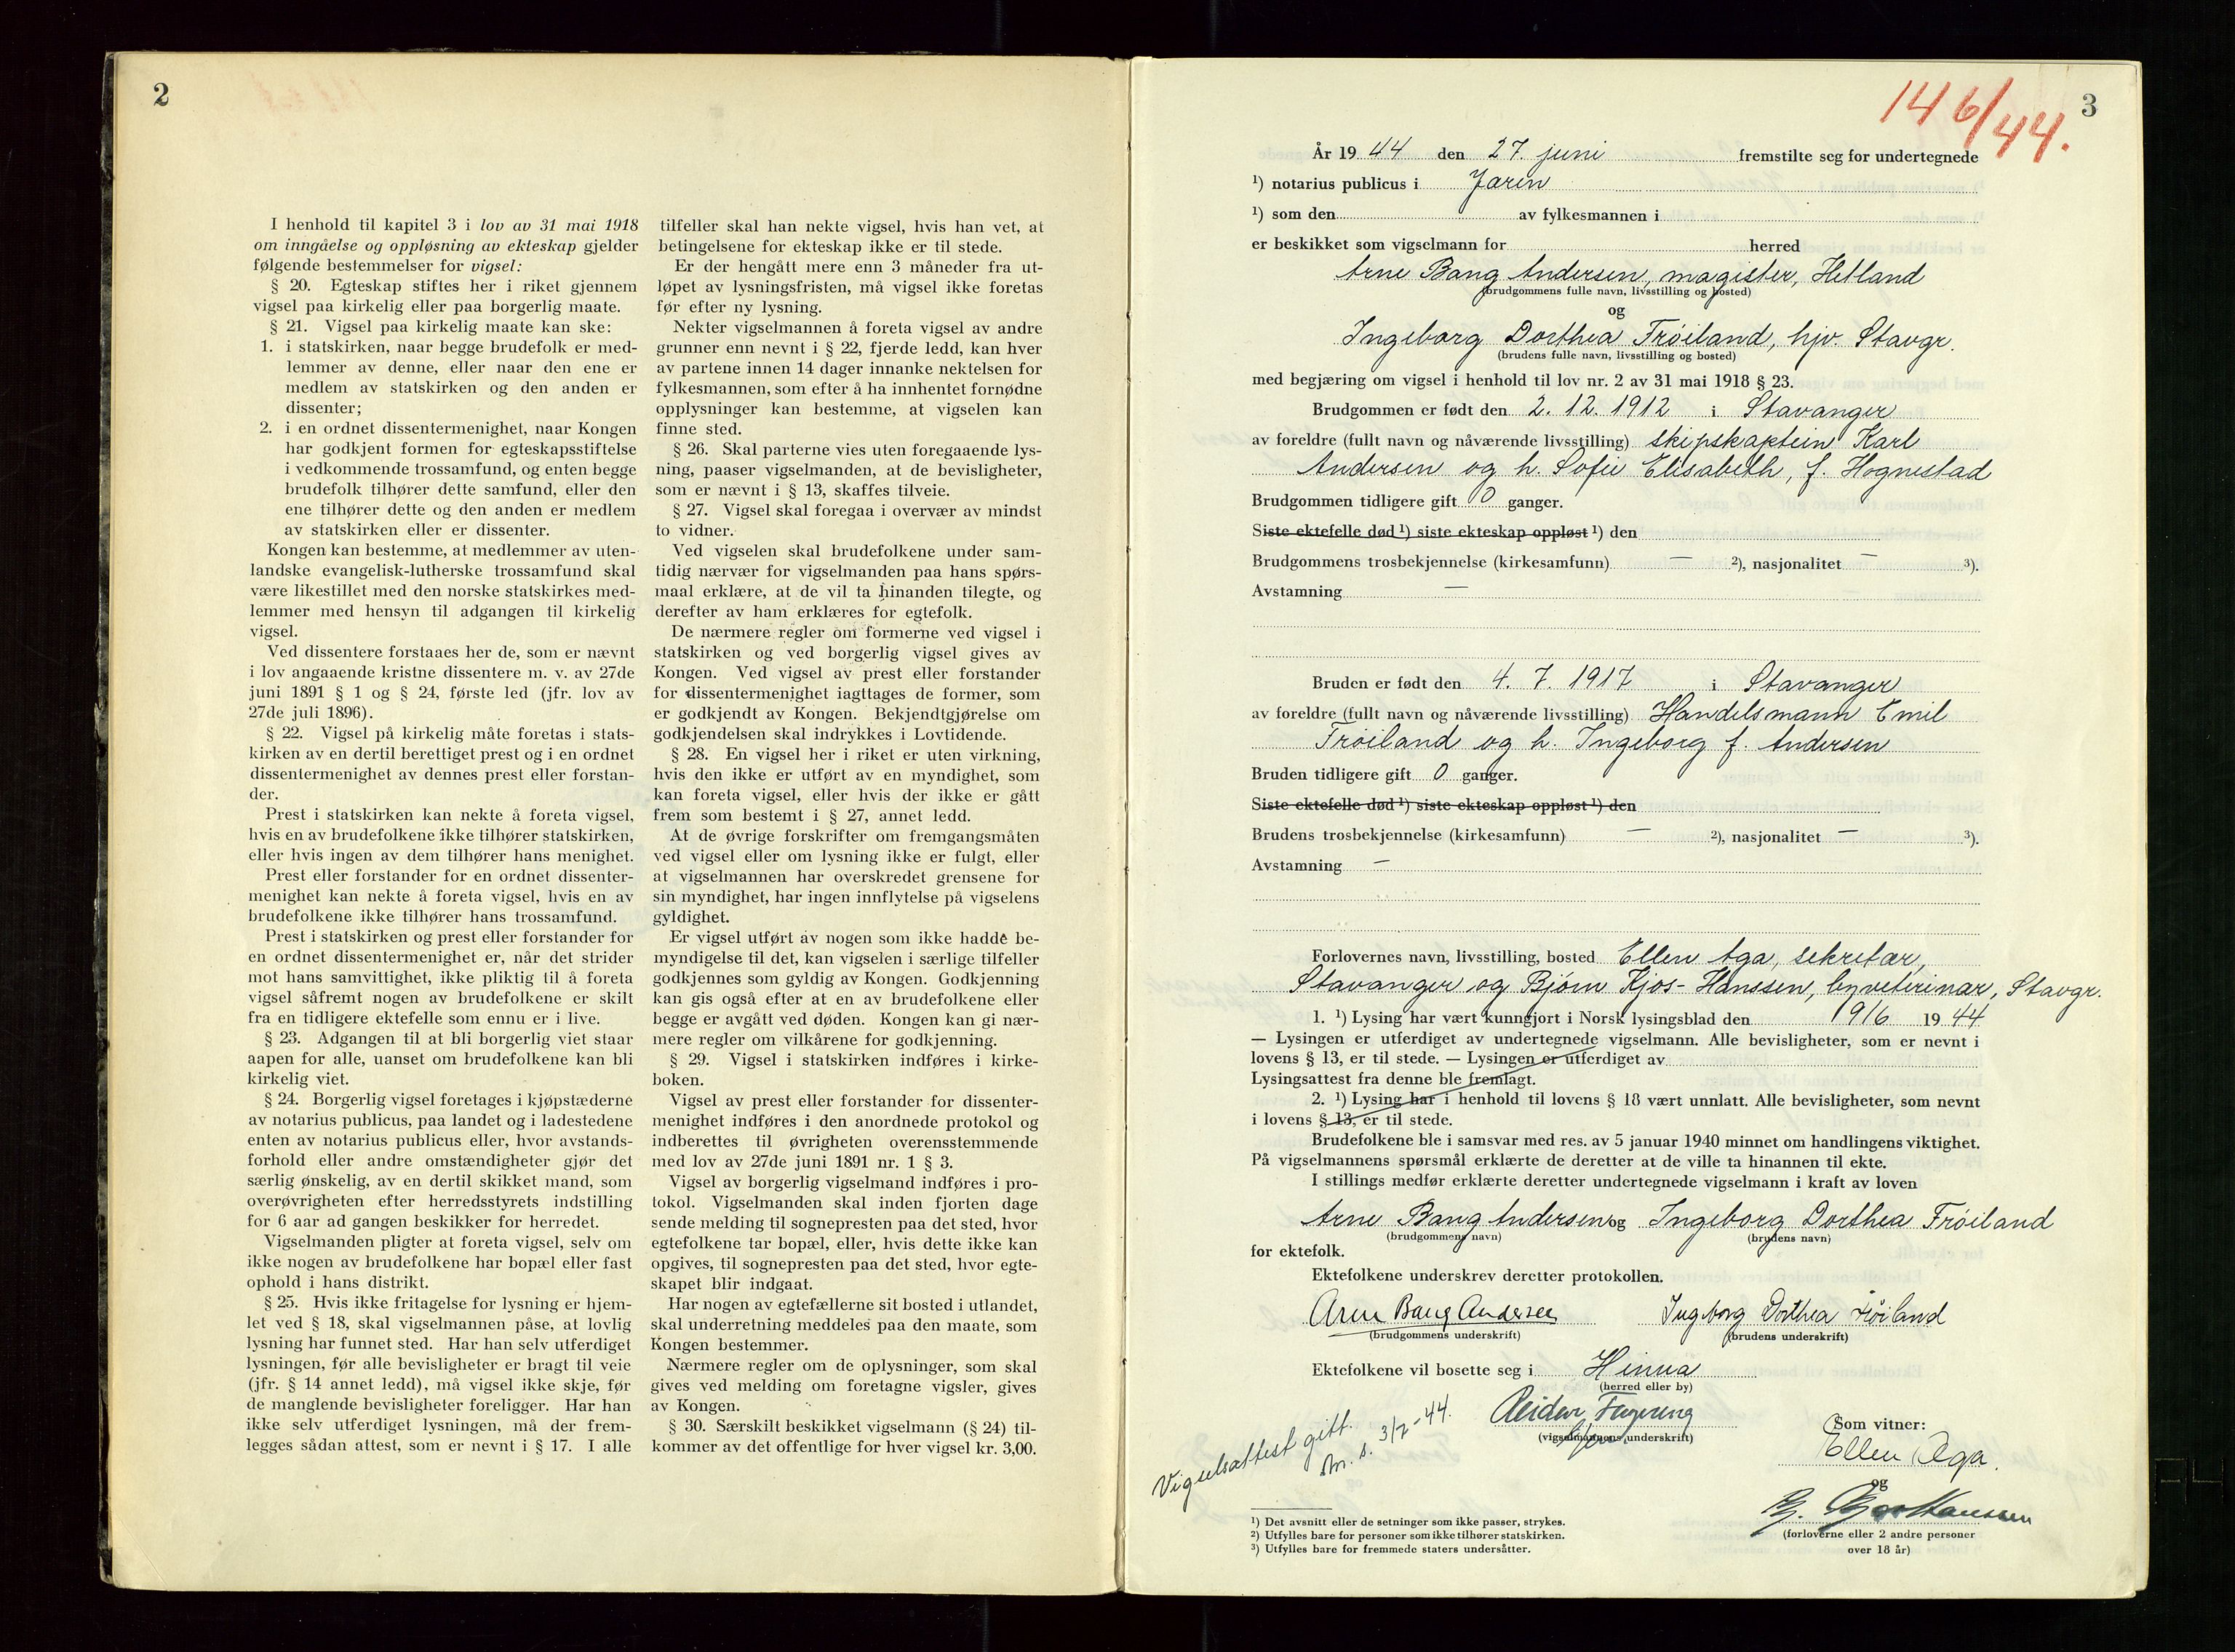 2
I henhold til kapitel 3 i lov av 31 mai 1918
om inngåelse og oppløsning av ekteskap gjelder
følgende bestemmelser for vigsel:
§ 20. Egteskap stiftes her i riket gjennem
vigsel paa kirkelig eller paa borgerlig maate.
§ 21. Vigsel paa kirkelig maate kan ske:
1. i statskirken, naar begge brudefolk er med-
lemmer av denne, eller naar den ene er
medlem av statskirken og den anden er
dissenter;
2. i en ordnet dissentermenighet, naar Kongen
har godkjent formen for egteskapsstiftelse
i vedkommende trossamfund, og enten begge
brudefolk tilhører dette samfund, eller den
ene tilhører dette og den anden er medlem
av statskirken eller er dissenter.
Kongen kan bestemme, at medlemmer av uten-
landske evangelisk-lutherske trossamfund skal
være likestillet med den norske statskirkes med-
lemmer med hensyn til adgangen til kirkelig
vigsel.
Ved dissentere forstaaes her de, som er nævnt
i lov angaaende kristne dissentere m. v. av 27de
juni 1891 § 1 og § 24, første led (jfr. lov av
27de juli 1896).
§ 22. Vigsel på kirkelig måte foretas i stats-
kirken av en dertil berettiget prest og i en ordnet
dissentermenighet av dennes prest eller forstan-
der.
Prest i statskirken kan nekte å foreta vigsel,
hvis en av brudefolkene ikke tilhører statskirken,
eller hvis ingen av dem tilhører hans menighet.
Prest eller forstander for en ordnet dissenter-
menighet kan nekte å foreta vigsel, hvis en av
brudefolkene ikke tilhører hans trossamfund.
Prest i statskirken og prest eller forstander for
en ordnet dissentermenighet er, når det strider
mot hans samvittighet, ikke pliktig til å foreta
vigsel såfremt nogen av brudefolkene er skilt
fra en tidligere ektefelle som ennu er i live.
§ 23. Adgangen til at bli borgerlig viet staar
aapen for alle, uanset om brudefolkene kan bli
kirkelig viet.
§ 24. Borgerlig vigsel foretages i kjøpstæderne
av notarius publicus, paa landet og i ladestedene
enten av notarius publicus eller, hvor avstands-
forhold eller andre omstændigheter gjør det
særlig ønskelig, av en dertil skikket mand, som
overøvrigheten efter herredsstyrets indstilling
for 6 aar ad gangen beskikker for herredet.
Vigselmanden pligter at foreta vigsel, selv om
ikke nogen av brudefolkene har bopæl eller fast
ophold i hans distrikt.
§ 25. Hvis ikke fritagelse for lysning er hjem-
let ved § 18, skal vigselmannen påse, at lovlig
lysning har funnet sted. Har han selv utferdiget
lysningen, før alle bevisligheter er bragt til veie
(jfr. § 14 annet ledd), må vigsel ikke skje, før
de manglende bevisligheter foreligger. Har han
ikke selv utferdiget lysningen, må der frem-
legges sådan attest, som er nevnt i § 17. I alle
tilfeller skal han nekte vigsel, hvis han vet, at
betingelsene for ekteskap ikke er til stede.
Er der hengått mere enn 3 måneder fra ut-
løpet av lysningsfristen, må vigsel ikke foretas
før efter ny lysning.
Nekter vigselmannen å foreta vigsel av andre
grunner enn nevnt i § 22, fjerde ledd, kan hver
av partene innen 14 dager innanke nektelsen for
fylkesmannen, som efter å ha innhentet fornødne
opplysninger kan bestemme, at vigselen kan
finne sted.
§ 26. Skal parterne vies uten foregaaende lys-
ning, paaser vigselmanden, at de bevisligheter,
som er nævnt i § 13, skaffes tilveie.
§ 27. Vigsel skal foregaa i overvær av mindst
to vidner.
Ved vigselen skal brudefolkene under sam-
tidig nærvær for vigselmanden paa hans spørs-
maal erklære, at de vil ta hinanden tilegte, og
derefter av ham erklæres for egtefolk.
De nærmere regler om formerne ved vigsel i
statskirken og ved borgerlig vigsel gives av
Kongen. Ved vigsel av prest eller forstander
for dissentermenighet iagttages de former, som
er godkjendt av Kongen. Bekjendtgjørelse om
godkjendelsen skal indrykkes i Lovtidende.
§ 28. En vigsel her i riket er uten virkning,
hvis den ikke er utført av en myndighet, som
kan foreta vigsel, eller hvis der ikke er gått
frem som bestemt i § 27, annet ledd.
At de øvrige forskrifter om fremgangsmåten
ved vigsel eller om lysning ikke er fulgt, eller
at vigselmannen har overskredet grensene for
sin myndighet, har ingen innflytelse på vigselens
gyldighet.
Er vigsel utført av nogen som ikke hadde be-
myndigelse til det, kan vigselen i særlige tilfeller
godkjennes som gyldig av Kongen. Godkjenning
kan gis også efter at en av brudefolkene eller
begge er avgått ved døden. Kongen kan gi nær-
mere regler om vilkårene for godkjenning.
§ 29. Vigsel i statskirken indføres i kirke-
boken.
Vigsel av prest eller forstander for dissenter-
menighet indføres i den anordnede protokol og
indberettes til øvrigheten overensstemmende
med lov av 27de juni 1891 nr. 1 § 3.
Vigsel av borgerlig vigselmand indføres i pro-
tokol. Vigselmanden skal inden fjorten dage
sende melding til sognepresten paa det sted, hvor
egtefolkene tar bopæl, eller, hvis dette ikke kan
opgives, til sognepresten paa det sted, hvor egte-
skapet blir indgaat.
Har nogen av egtefællerne sit bosted i utlandet,
skal underretning meddeles paa den maate, som
Kongen bestemmer.
Nærmere regler om de oplysninger, som skal
gives ved melding om foretagne vigsler, gives
av Kongen.
§ 30. Særskilt beskikket vigselmann (§ 24) til-
kommer av det offentlige for hver vigsel kr. 3,00.
146/44.
3
År 1944 den 27. juni fremstilte seg for undertegnede
¹) notarius publicus i Jæren
¹) som den av fylkesmannen i
er beskikket som vigselmann for herred
Arne Bang Andersen, magister, Hetland
(brudgommens fulle navn, livsstilling og bosted)
og
Ingeborg Dorthea Tröiland, hjv. Stavgr.
(brudens fulle navn, livsstilling og bosted)
med begjæring om vigsel i henhold til lov nr. 2 av 31 mai 1918 § 23.
Brudgommen er født den 2. 12. 1912 i Stavanger
av foreldre (fullt navn og nåværende livsstilling) skipskaptein Karl
Andersen og h. Sofie Elisabeth, f. Hognestad
Brudgommen tidligere gift 0 ganger.
Siste ektefelle død ¹) siste ekteskap oppløst ¹) den
Brudgommens trosbekjennelse (kirkesamfunn) — ²), nasjonalitet — ³).
Avstamning —
Bruden er født den 4. 7. 1917 i Stavanger
av foreldre (fullt navn og nåværende livsstilling) Handelsmann Emil
Tröiland og h. Ingeborg f. Andersen
Bruden tidligere gift 0 ganger.
Siste ektefelle død ¹) siste ekteskap oppløst ¹) den
Brudens trosbekjennelse (kirkesamfunn) — ²), nasjonalitet — ³).
Avstamning —
Forlovernes navn, livsstilling, bosted Ellen Aga, sekretær,
Stavanger og Björn Kjos-Hanssen, byveterinær, Stavgr.
1. ¹) Lysing har vært kunngjort i Norsk lysingsblad den 9/6 1944
— Lysingen er utferdiget av undertegnede vigselmann. Alle bevisligheter, som er nevnt i
lovens § 13, er til stede. — Lysingen er utferdiget av
Lysingsattest fra denne ble fremlagt.
2. ¹) Lysing har i henhold til lovens § 18 vært unnlatt. Alle bevisligheter, som nevnt
i lovens § 13, er til stede.
Brudefolkene ble i samsvar med res. av 5 januar 1940 minnet om handlingens viktighet.
På vigselmannens spørsmål erklærte de deretter at de ville ta hinannen til ekte.
I stillings medfør erklærte deretter undertegnede vigselmann i kraft av loven
Arne Bang Andersen og Ingeborg Dorthea Tröiland
(brudgommens navn) (brudens navn)
for ektefolk.
Ektefolkene underskrev deretter protokollen.
Arne Bang Andersen Ingeborg Dorthea Tröiland
(brudgommens underskrift) (brudens underskrift)
Ektefolkene vil bosette seg i Hinna
(herred eller by)
Reidar
(vigselmannens underskrift)
Som vitner:
Ellen Aga.
og
B. Kjos Hanssen
(forloverne eller 2 andre personer
over 18 år)
Vigselsattest gitt.
3/7-44.
¹) Det avsnitt eller de setninger som ikke passer, strykes.
²) Utfylles bare for personer som ikke tilhører statskirken.
³) Utfylles bare for fremmede staters undersåtter.